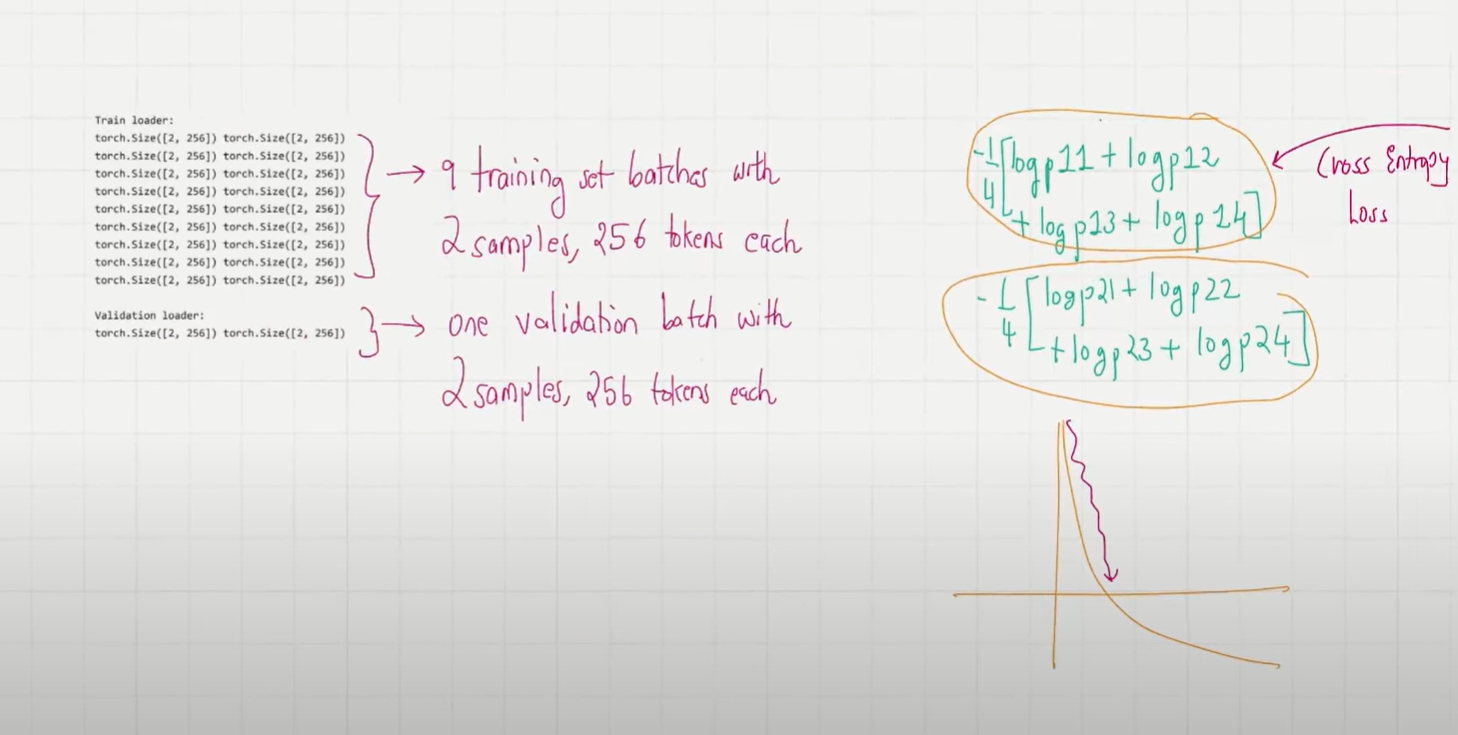 Train loader:
torch.Size([2, 256]) torch.Size([2, 256])
torch.Size([2, 256]) torch.Size([2, 256])
torch.Size([2, 256]) torch.Size([2, 256])
torch.Size([2, 256]) torch.Size([2, 256])
torch.Size([2, 256]) torch.Size([2, 256])
torch.Size([2, 256]) torch.Size([2, 256])
torch.Size([2, 256]) torch.Size([2, 256])
torch.Size([2, 256]) torch.Size([2, 256])
torch.Size([2, 256]) torch.Size([2, 256])
Validation loader:
torch.Size([2, 256]) torch.Size([2, 256])
→ 9 training set batches with
2 samples, 256 tokens each
→ one validation batch with
2 samples, 256 tokens each
-1/4 [log p11 + log p12
+ log p13 + log p14]
Cross Entropy
Loss
-1/4 [log p21 + log p22
+ log p23 + log p24]